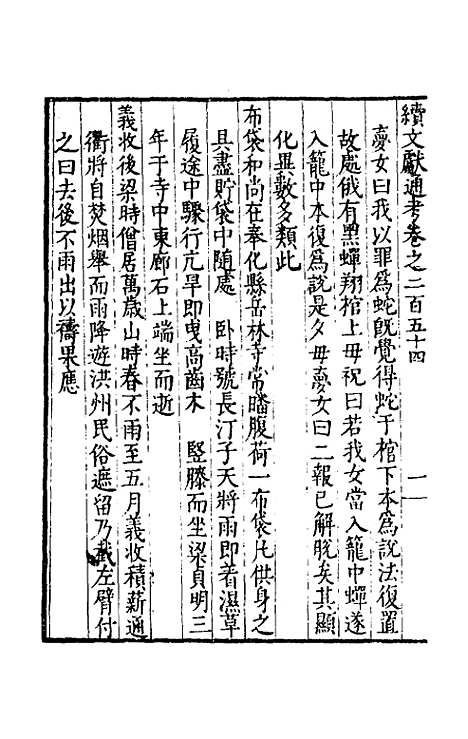 續文獻通考卷之二百五十四
一
夢女曰我以罪爲蛇旣覺得蛇于棺下本爲說法復置
故處俄有黑蟬翔棺上毋祝曰若我女當入籠中蟬遂
入籠中本復爲說是夕毋夢女曰二報已解脫矣其顯
化異數多類此
布袋和尚在奉化縣岳林寺常皤腹荷一布袋凡供身之
具盡貯袋中隨處 臥時號長汀子天將雨即着濕草
履途中驟行亢旱即曳高齒木 竪膝而坐梁貞明三
年于寺中東廊石上端坐而逝
義收後梁時僧居萬歲山時春不雨至五月義收積薪通
衢將自焚烟舉而雨降遊洪州民俗遮留乃截左臂付
之曰去後不雨出以禱果應